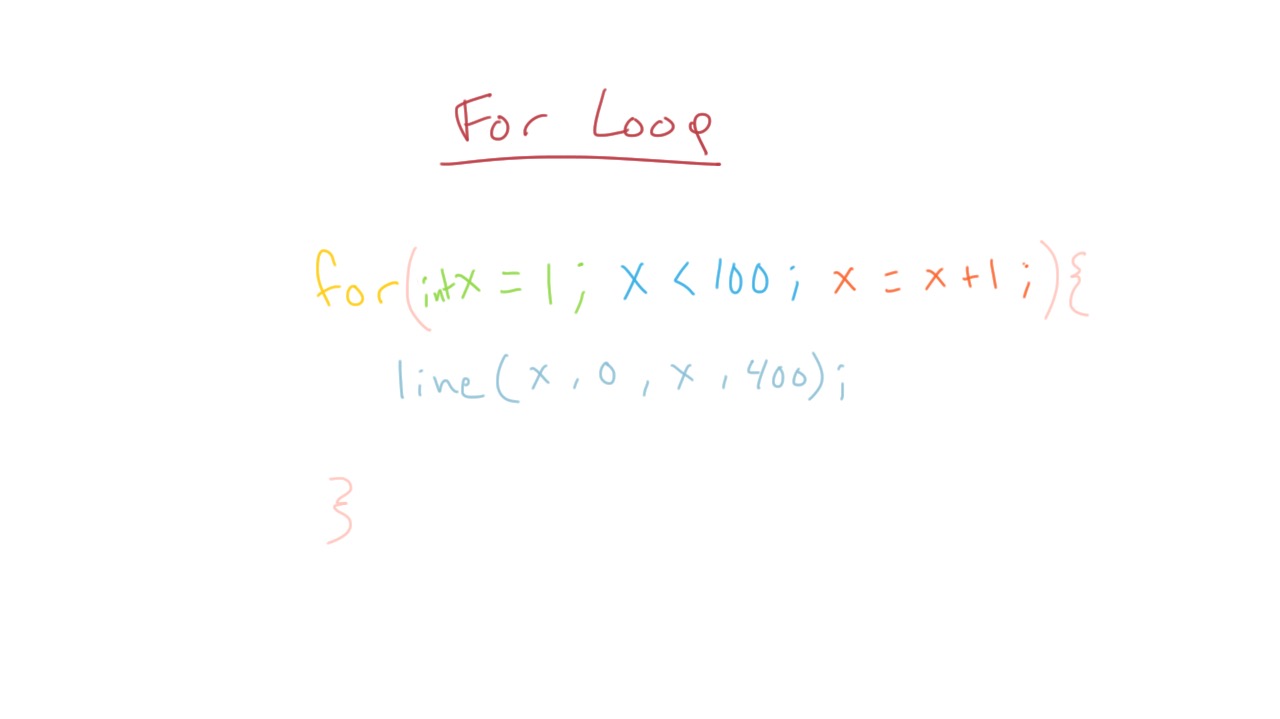 For Loop
for(int x = 1; x < 100; x = x+1;){
line(x, 0, x, 400);
}